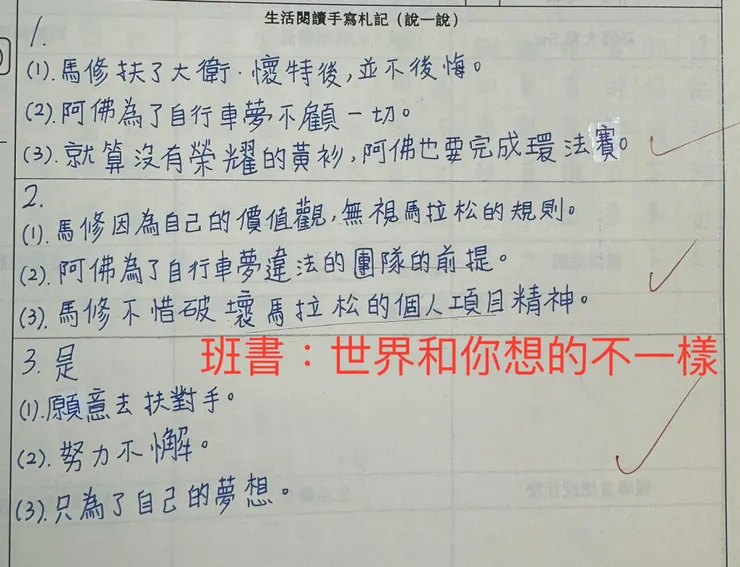 生活閱讀手寫札記（說一說）
1.
(1).馬修扶了大衛·懷特後，並不後悔。
(2).阿佛為了自行車夢不顧一切。
(3).就算沒有榮耀的黃衫，阿佛也要完成環法賽。
2.
(1).馬修因為自己的價值觀，無視馬拉松的規則。
(2).阿佛為了自行車夢違法的團隊的前提。
(3).馬修不惜破壞馬拉松的個人項目精神。
3.是
班書：世界和你想的不一樣
(1).願意去扶對手。
(2).努力不懈。
(3).只為了自己的夢想。